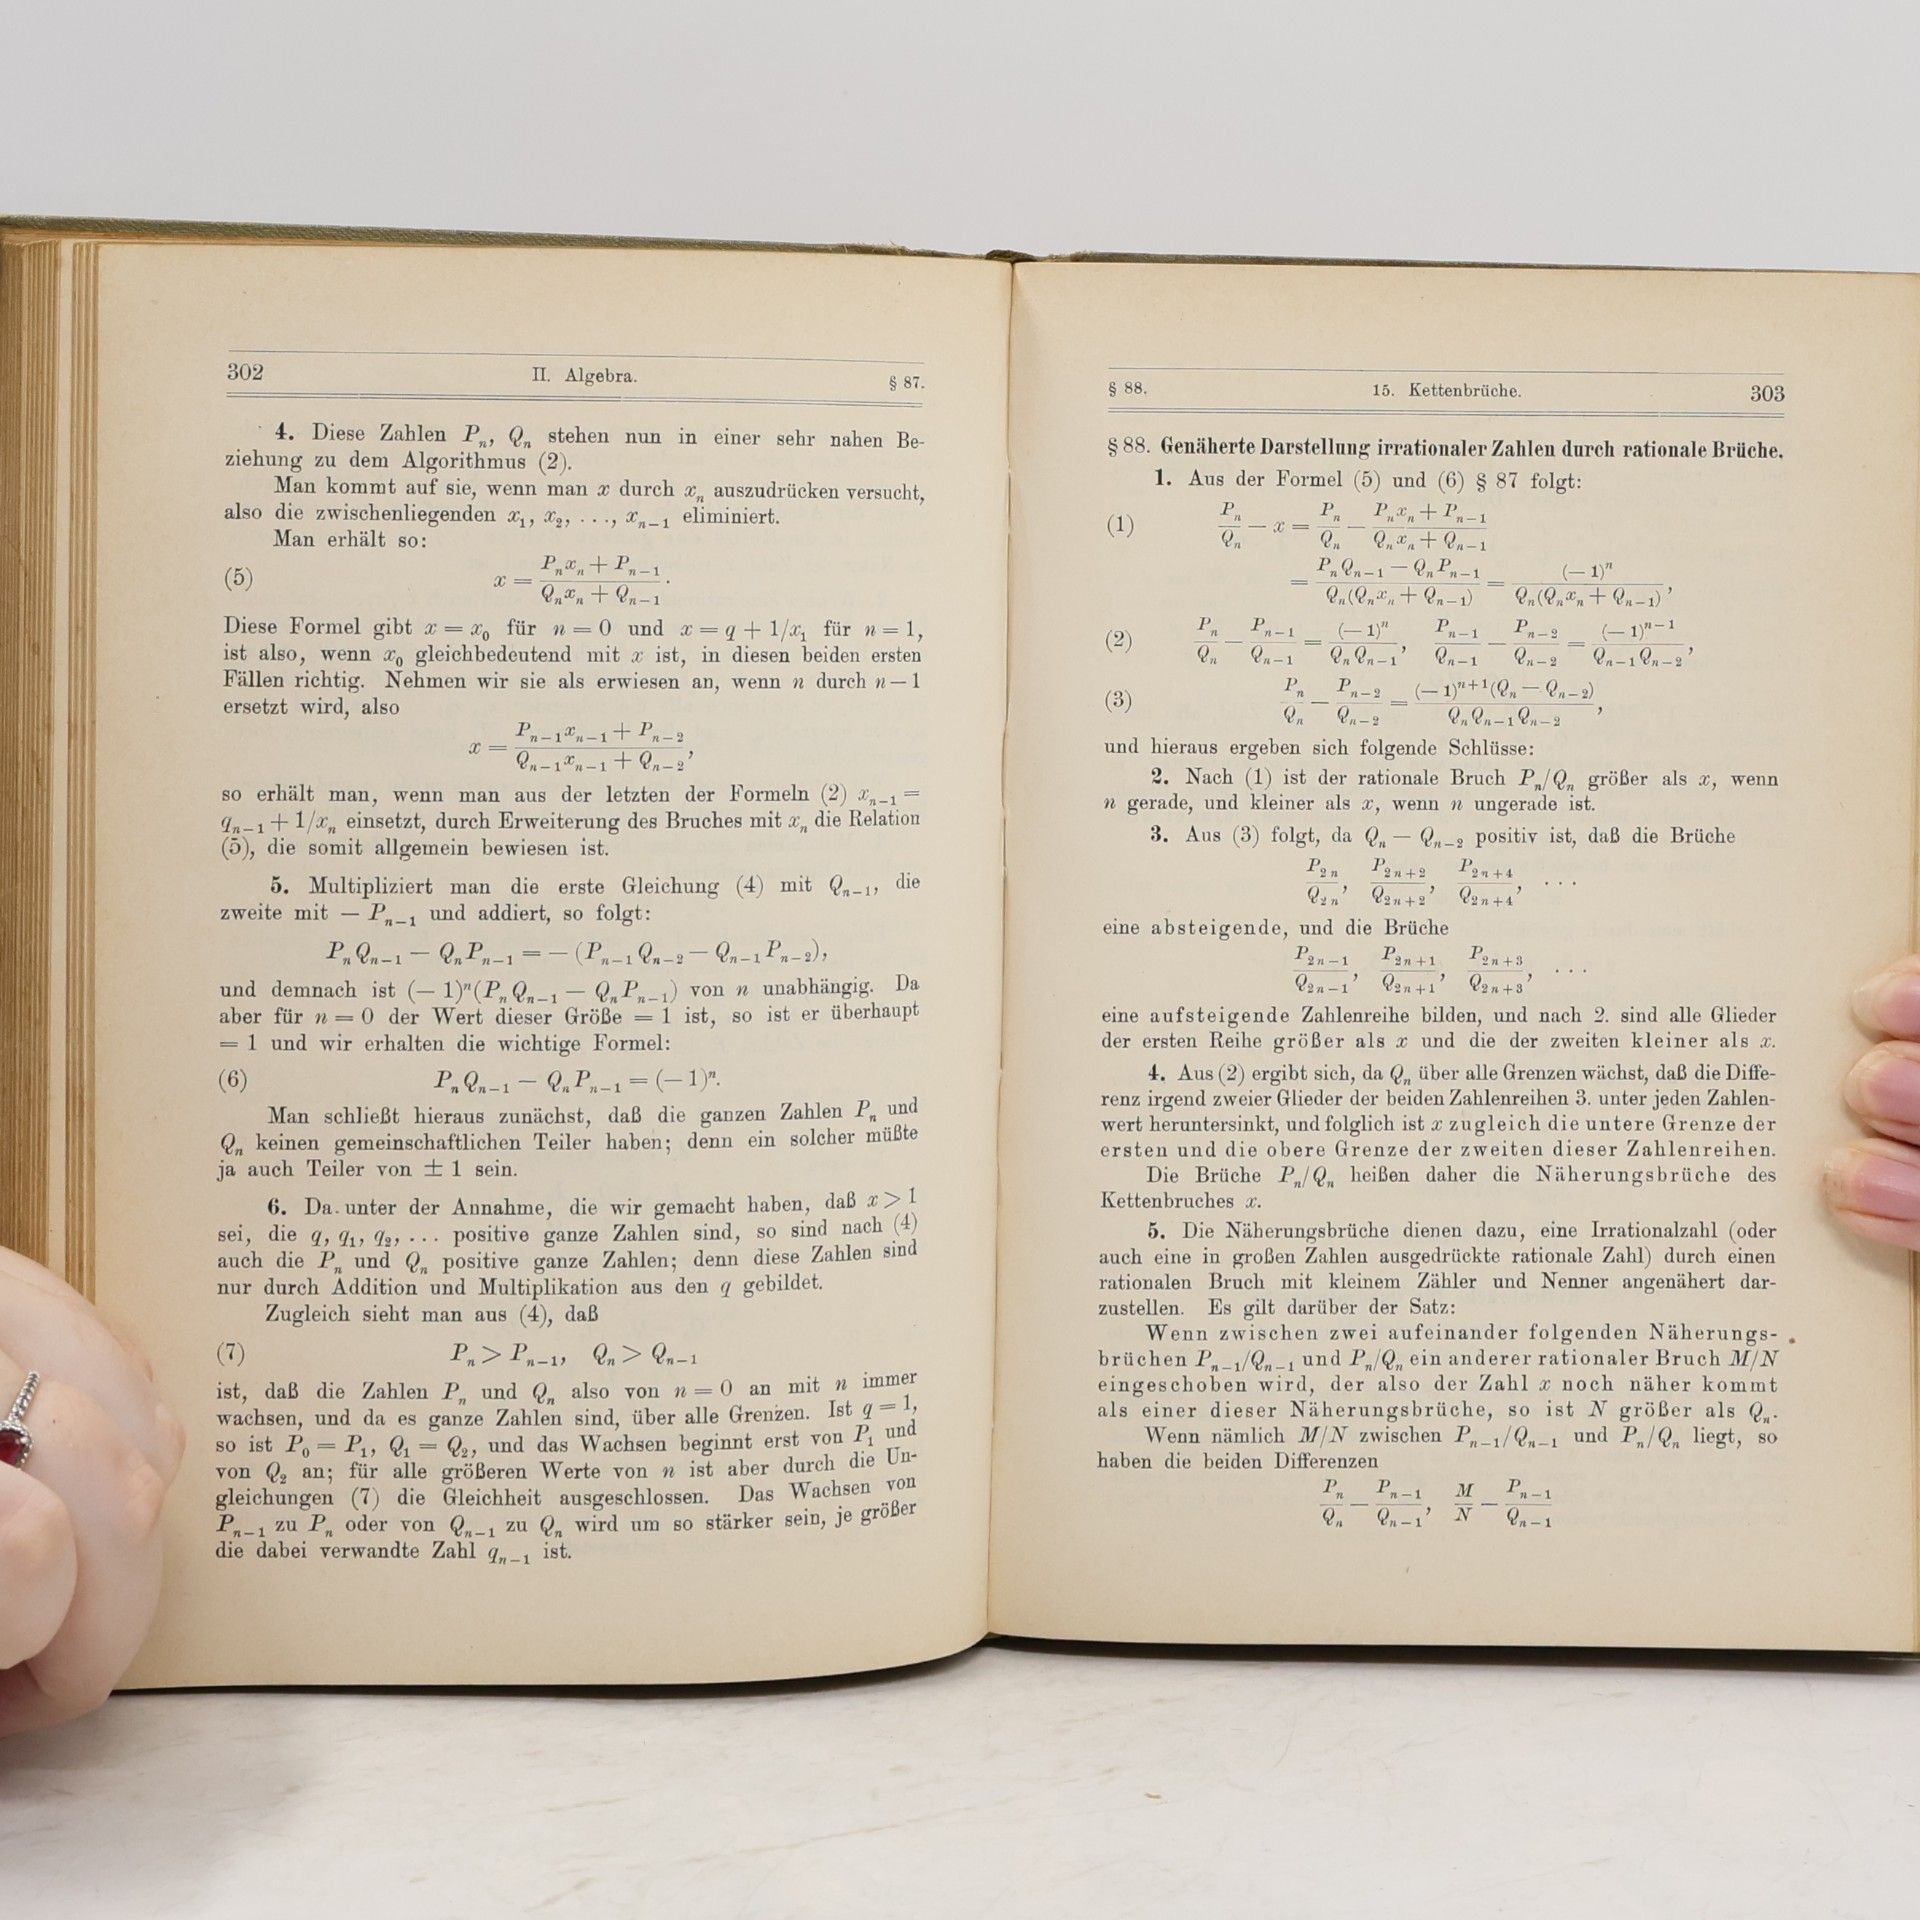 302 II. Algebra. § 87.
4. Diese Zahlen Pₙ, Qₙ stehen nun in einer sehr nahen Be-
ziehung zu dem Algorithmus (2).
Man kommt auf sie, wenn man x durch xₙ auszudrücken versucht,
also die zwischenliegenden x₁, x₂, ..., xₙ₋₁ eliminiert.
Man erhält so:
(5) x = (Pₙxₙ + Pₙ₋₁)/(Qₙxₙ + Qₙ₋₁).
Diese Formel gibt x = x₀ für n = 0 und x = q + 1/x₁ für n = 1,
ist also, wenn x₀ gleichbedeutend mit x ist, in diesen beiden ersten
Fällen richtig. Nehmen wir sie als erwiesen an, wenn n durch n − 1
ersetzt wird, also
x = (Pₙ₋₁xₙ₋₁ + Pₙ₋₂)/(Qₙ₋₁xₙ₋₁ + Qₙ₋₂),
so erhält man, wenn man aus der letzten der Formeln (2) xₙ₋₁ =
qₙ₋₁ + 1/xₙ einsetzt, durch Erweiterung des Bruches mit xₙ die Relation
(5), die somit allgemein bewiesen ist.
5. Multipliziert man die erste Gleichung (4) mit Qₙ₋₁, die
zweite mit − Pₙ₋₁ und addiert, so folgt:
PₙQₙ₋₁ − QₙPₙ₋₁ = − (Pₙ₋₁Qₙ₋₂ − Qₙ₋₁Pₙ₋₂),
und demnach ist (− 1)ⁿ(PₙQₙ₋₁ − QₙPₙ₋₁) von n unabhängig. Da
aber für n = 0 der Wert dieser Größe = 1 ist, so ist er überhaupt
= 1 und wir erhalten die wichtige Formel:
(6) PₙQₙ₋₁ − QₙPₙ₋₁ = (− 1)ⁿ.
Man schließt hieraus zunächst, daß die ganzen Zahlen Pₙ und
Qₙ keinen gemeinschaftlichen Teiler haben; denn ein solcher müßte
ja auch Teiler von ± 1 sein.
6. Da unter der Annahme, die wir gemacht haben, daß x > 1
sei, die q, q₁, q₂, ... positive ganze Zahlen sind, so sind nach (4)
auch die Pₙ und Qₙ positive ganze Zahlen; denn diese Zahlen sind
nur durch Addition und Multiplikation aus den q gebildet.
Zugleich sieht man aus (4), daß
(7) Pₙ > Pₙ₋₁, Qₙ > Qₙ₋₁
ist, daß die Zahlen Pₙ und Qₙ also von n = 0 an mit n immer
wachsen, und da es ganze Zahlen sind, über alle Grenzen. Ist q = 1,
so ist P₀ = P₁, Q₁ = Q₂, und das Wachsen beginnt erst von P₁ und
von Q₂ an; für alle größeren Werte von n ist aber durch die Un-
gleichungen (7) die Gleichheit ausgeschlossen. Das Wachsen von
Pₙ₋₁ zu Pₙ oder von Qₙ₋₁ zu Qₙ wird um so stärker sein, je größer
die dabei verwandte Zahl qₙ₋₁ ist.
§ 88. 15. Kettenbrüche. 303
§ 88. Genäherte Darstellung irrationaler Zahlen durch rationale Brüche.
1. Aus der Formel (5) und (6) § 87 folgt:
(1) Pₙ/Qₙ − x = Pₙ/Qₙ − (Pₙxₙ + Pₙ₋₁)/(Qₙxₙ + Qₙ₋₁)
= (PₙQₙ₋₁ − QₙPₙ₋₁)/(Qₙ(Qₙxₙ + Qₙ₋₁)) = (− 1)ⁿ/(Qₙ(Qₙxₙ + Qₙ₋₁)),
(2) Pₙ/Qₙ − Pₙ₋₁/Qₙ₋₁ = (− 1)ⁿ/(QₙQₙ₋₁), Pₙ₋₁/Qₙ₋₁ − Pₙ₋₂/Qₙ₋₂ = (− 1)ⁿ⁻¹/(Qₙ₋₁Qₙ₋₂),
(3) Pₙ/Qₙ − Pₙ₋₂/Qₙ₋₂ = (− 1)ⁿ⁺¹(Qₙ − Qₙ₋₂)/(QₙQₙ₋₁Qₙ₋₂),
und hieraus ergeben sich folgende Schlüsse:
2. Nach (1) ist der rationale Bruch Pₙ/Qₙ größer als x, wenn
n gerade, und kleiner als x, wenn n ungerade ist.
3. Aus (3) folgt, da Qₙ − Qₙ₋₂ positiv ist, daß die Brüche
P₂ₙ/Q₂ₙ, P₂ₙ₊₂/Q₂ₙ₊₂, P₂ₙ₊₄/Q₂ₙ₊₄, ...
eine absteigende, und die Brüche
P₂ₙ₋₁/Q₂ₙ₋₁, P₂ₙ₊₁/Q₂ₙ₊₁, P₂ₙ₊₃/Q₂ₙ₊₃, ...
eine aufsteigende Zahlenreihe bilden, und nach 2. sind alle Glieder
der ersten Reihe größer als x und die der zweiten kleiner als x.
4. Aus (2) ergibt sich, da Qₙ über alle Grenzen wächst, daß die Diffe-
renz irgend zweier Glieder der beiden Zahlenreihen 3. unter jeden Zahlen-
wert heruntersinkt, und folglich ist x zugleich die untere Grenze der
ersten und die obere Grenze der zweiten dieser Zahlenreihen.
Die Brüche Pₙ/Qₙ heißen daher die Näherungsbrüche des
Kettenbruches x.
5. Die Näherungsbrüche dienen dazu, eine Irrationalzahl (oder
auch eine in großen Zahlen ausgedrückte rationale Zahl) durch einen
rationalen Bruch mit kleinem Zähler und Nenner angenähert dar-
zustellen. Es gilt darüber der Satz:
Wenn zwischen zwei aufeinander folgenden Näherungs-
brüchen Pₙ₋₁/Qₙ₋₁ und Pₙ/Qₙ ein anderer rationaler Bruch M/N
eingeschoben wird, der also der Zahl x noch näher kommt
als einer dieser Näherungsbrüche, so ist N größer als Qₙ.
Wenn nämlich M/N zwischen Pₙ₋₁/Qₙ₋₁ und Pₙ/Qₙ liegt, so
haben die beiden Differenzen
Pₙ/Qₙ − Pₙ₋₁/Qₙ₋₁, M/N − Pₙ₋₁/Qₙ₋₁